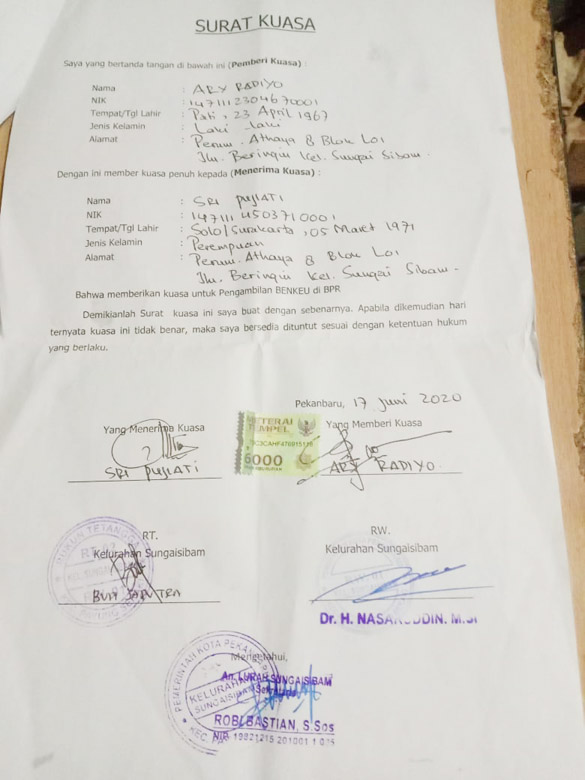 SURAT KUASA
Saya yang bertanda tangan di bawah ini (Pemberi Kuasa) :
Nama : ARY RADIYO
NIK : 1471112304670001
Tempat/Tgl Lahir : Pati, 23 April 1967
Jenis Kelamin : Laki - laki
Alamat : Perum. Athaya 8 Blok L01
Jln. Beringin Kel. Sungai Sibam.
Dengan ini member kuasa penuh kepada (Menerima Kuasa) :
Nama : SRI PUJIATI
NIK : 1471114503710001
Tempat/Tgl Lahir : Solo/Surakarta, 05 Maret 1971
Jenis Kelamin : Perempuan
Alamat : Perum. Athaya 8 Blok L01
Jln. Beringin Kel. Sungai Sibam.
Bahwa memberikan kuasa untuk Pengambilan BENKEU di BPR
Demikianlah Surat kuasa ini saya buat dengan sebenarnya. Apabila dikemudian hari
ternyata kuasa ini tidak benar, maka saya bersedia dituntut sesuai dengan ketentuan hukum
yang berlaku.
Pekanbaru, 17 Juni 2020
Yang Menerima Kuasa
METERAI TEMPEL
6000
Yang Memberi Kuasa
SRI PUJIATI
ARY RADIYO.
RT.
Kelurahan Sungaisibam
RUKUN TETANGGA
RW.
Kelurahan Sungaisibam
Dr. H. NASARUDDIN. M.SI
Mengetahui,
An. LURAH SUNGAISIBAM
PEMERINTAH KOTA
KELURAHAN
SUNGAISIBAM
ROBI BASTIAN, S.Sos
NIP.